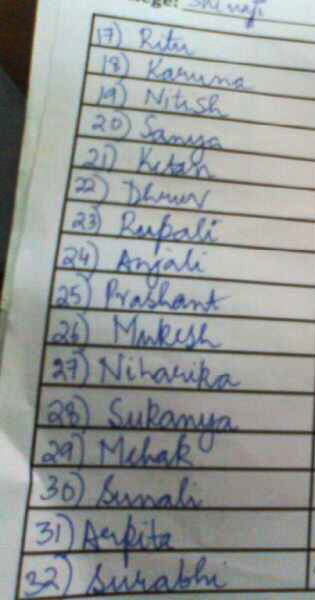 17) Ritu
18) Karuna
19) Nitish
20) Sanya
21) Ketan
22) Dhruv
23) Rupali
24) Anjali
25) Prashant
26) Mukesh
27) Niharika
28) Sukanya
29) Mehak
30) Sunali
31) Arpita
32) Surabhi